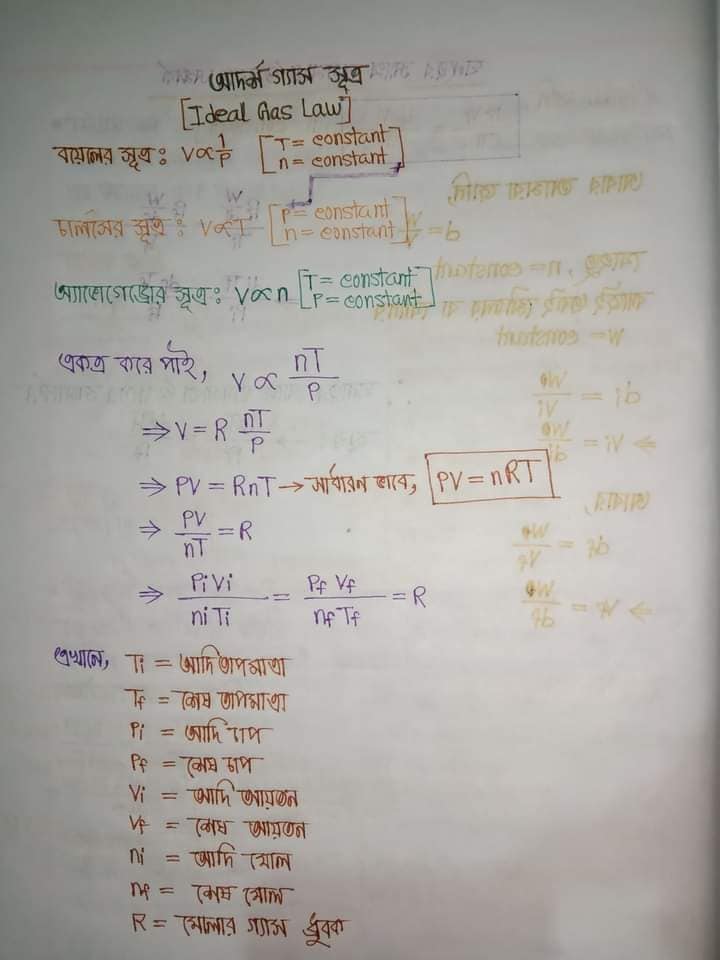 আদর্শ গ্যাস সূত্র
[Ideal Gas Law]
বয়েলের সূত্র: V∝1/P [T = constant n = constant]
চার্লসের সূত্র: V∝T [P = constant n = constant]
অ্যাভোগেড্রোর সূত্র: V∝n [T = constant P = constant]
একত্র করে পাই, V ∝ nT/P
⇒ V = R nT/P
⇒ PV = RnT → সাধারন ভাবে, PV = nRT
⇒ PV/nT = R
⇒ PiVi/niTi = PfVf/nfTf = R
এখানে, Ti = আদি তাপমাত্রা
Tf = শেষ তাপমাত্রা
Pi = আদি চাপ
Pf = শেষ চাপ
Vi = আদি আয়তন
Vf = শেষ আয়তন
ni = আদি মোল
nf = শেষ মোল
R = মোলার গ্যাস ধ্রুবক